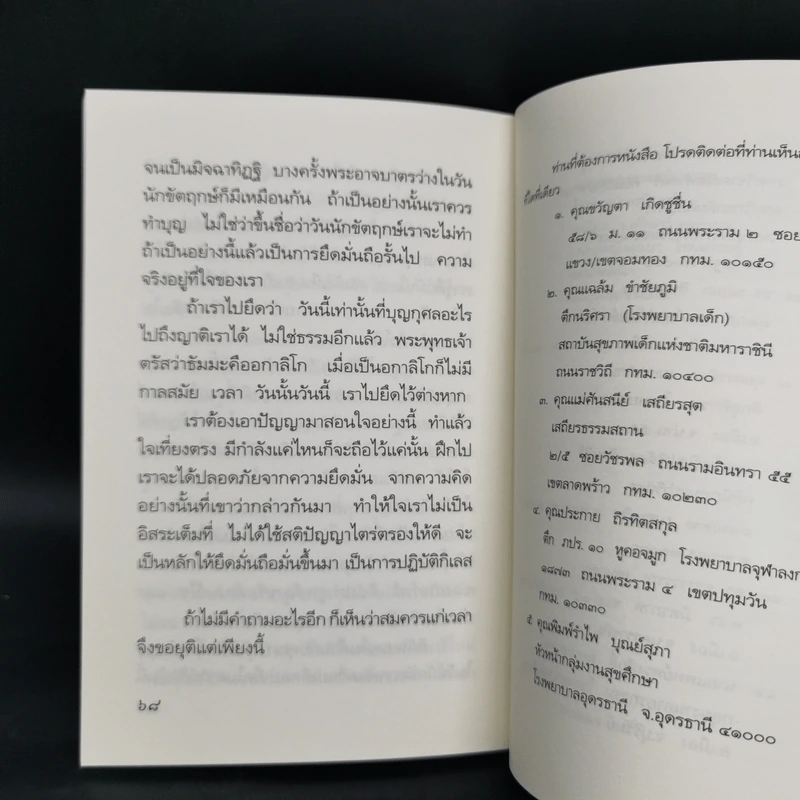 จนเป็นมิจฉาทิฏฐิ บางครั้งพระอาจบาตรว่างในวัน
นักขัตฤกษ์ก็มีเหมือนกัน ถ้าเป็นอย่างนั้นเราควร
ทำบุญ ไม่ใช่ว่าขึ้นชื่อว่าวันนักขัตฤกษ์เราจะไม่ทำ
ถ้าเป็นอย่างนี้แล้วเป็นการยึดมั่นถือรั้นไป ความ
จริงอยู่ที่ใจของเรา
ถ้าเราไปยึดว่า วันนี้เท่านั้นที่บุญกุศลอะไร
ไปถึงญาติเราได้ ไม่ใช่ธรรมอีกแล้ว พระพุทธเจ้า
ตรัสว่าธัมมะคืออกาลิโก เมื่อเป็นอกาลิโกก็ไม่มี
กาลสมัย เวลา วันนั้นวันนี้ เราไปยึดไว้ต่างหาก
เราต้องเอาปัญญามาสอนใจอย่างนี้ ทำแล้ว
ใจเที่ยงตรง มีกำลังแค่ไหนก็จะถือไว้แค่นั้น ฝึกไป
เราจะได้ปลอดภัยจากความยึดมั่น จากความคิด
อย่างนั้นที่เขาว่ากล่าวกันมา ทำให้ใจเราไม่เป็น
อิสระเต็มที่ ไม่ได้ใช้สติปัญญาไตร่ตรองให้ดี จะ
เป็นหลักให้ยึดมั่นถือมั่นขึ้นมา เป็นการปฏิบัติกิเลส
ถ้าไม่มีคำถามอะไรอีก ก็เห็นว่าสมควรแก่เวลา
จึงขอยุติแต่เพียงนี้
๖๘
ท่านที่ต้องการหนังสือ โปรดติดต่อที่ท่านเห็น
ที่ใดที่เดียว
๑. คุณขวัญตา เกิดชูชื่น
๕๘/๖ ม. ๑๑ ถนนพระราม ๒ ซอย
แขวง/เขตจอมทอง กทม. ๑๐๑๕๐
๒. คุณแฉล้ม ขำชัยภูมิ
ตึกนริศรา (โรงพยาบาลเด็ก)
สถาบันสุขภาพเด็กแห่งชาติมหาราชินี
ถนนราชวิถี กทม. ๑๐๔๐๐
๓. คุณแม่ศันสนีย์ เสถียรสุต
เสถียรธรรมสถาน
๒/๕ ซอยวัชรพล ถนนรามอินทรา ๕๕
เขตลาดพร้าว กทม. ๑๐๒๓๐
๔. คุณประกาย ถิรทิตสกุล
ตึก ภปร. ๑๐ หูคอจมูก โรงพยาบาลจุฬาลงก
๑๘๗๓ ถนนพระราม ๔ เขตปทุมวัน
กทม. ๑๐๓๓๐
๕. คุณพิมพ์รำไพ บุณย์สุภา
หัวหน้ากลุ่มงานสุขศึกษา
โรงพยาบาลอุดรธานี จ.อุดรธานี ๔๑๐๐๐